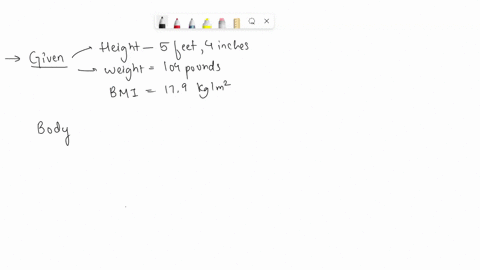 → Given → Height — 5 feet, 4 inches
→ weight = 104 pounds
BMI = 17.9 kg/m²
Body